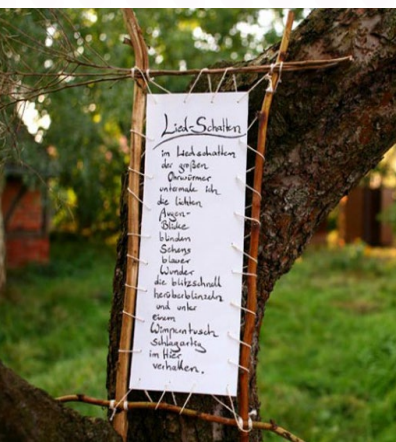 Lied-Schatten
im Liedschatten
der großen
Ohrwürmer
untermale ich
die lichten
Augen-
Blicke
blinden
Sehens
blauer
Wunder
die blitzschnell
herüberblinzeln
und unter
einem
Wimperntusch
schlagartig
im Hier
verhallen.